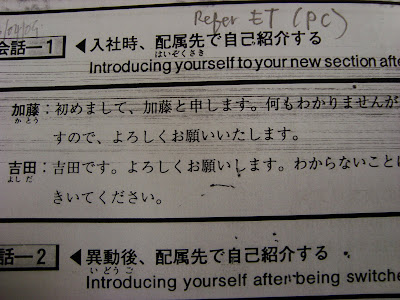 Refer ET (PC)
会話―1 ◀入社時、配属先で自己紹介する
はいぞくさき
Introducing yourself to your new section afte
加藤：初めまして、加藤と申します。何もわかりませんが
かとう
すので、よろしくお願いいたします。
吉田：吉田です。よろしくお願いします。わからないことに
よしだ
きいてください。
話―2 ◀異動後、配属先で自己紹介する
いどうご
Introducing yourself after being switche